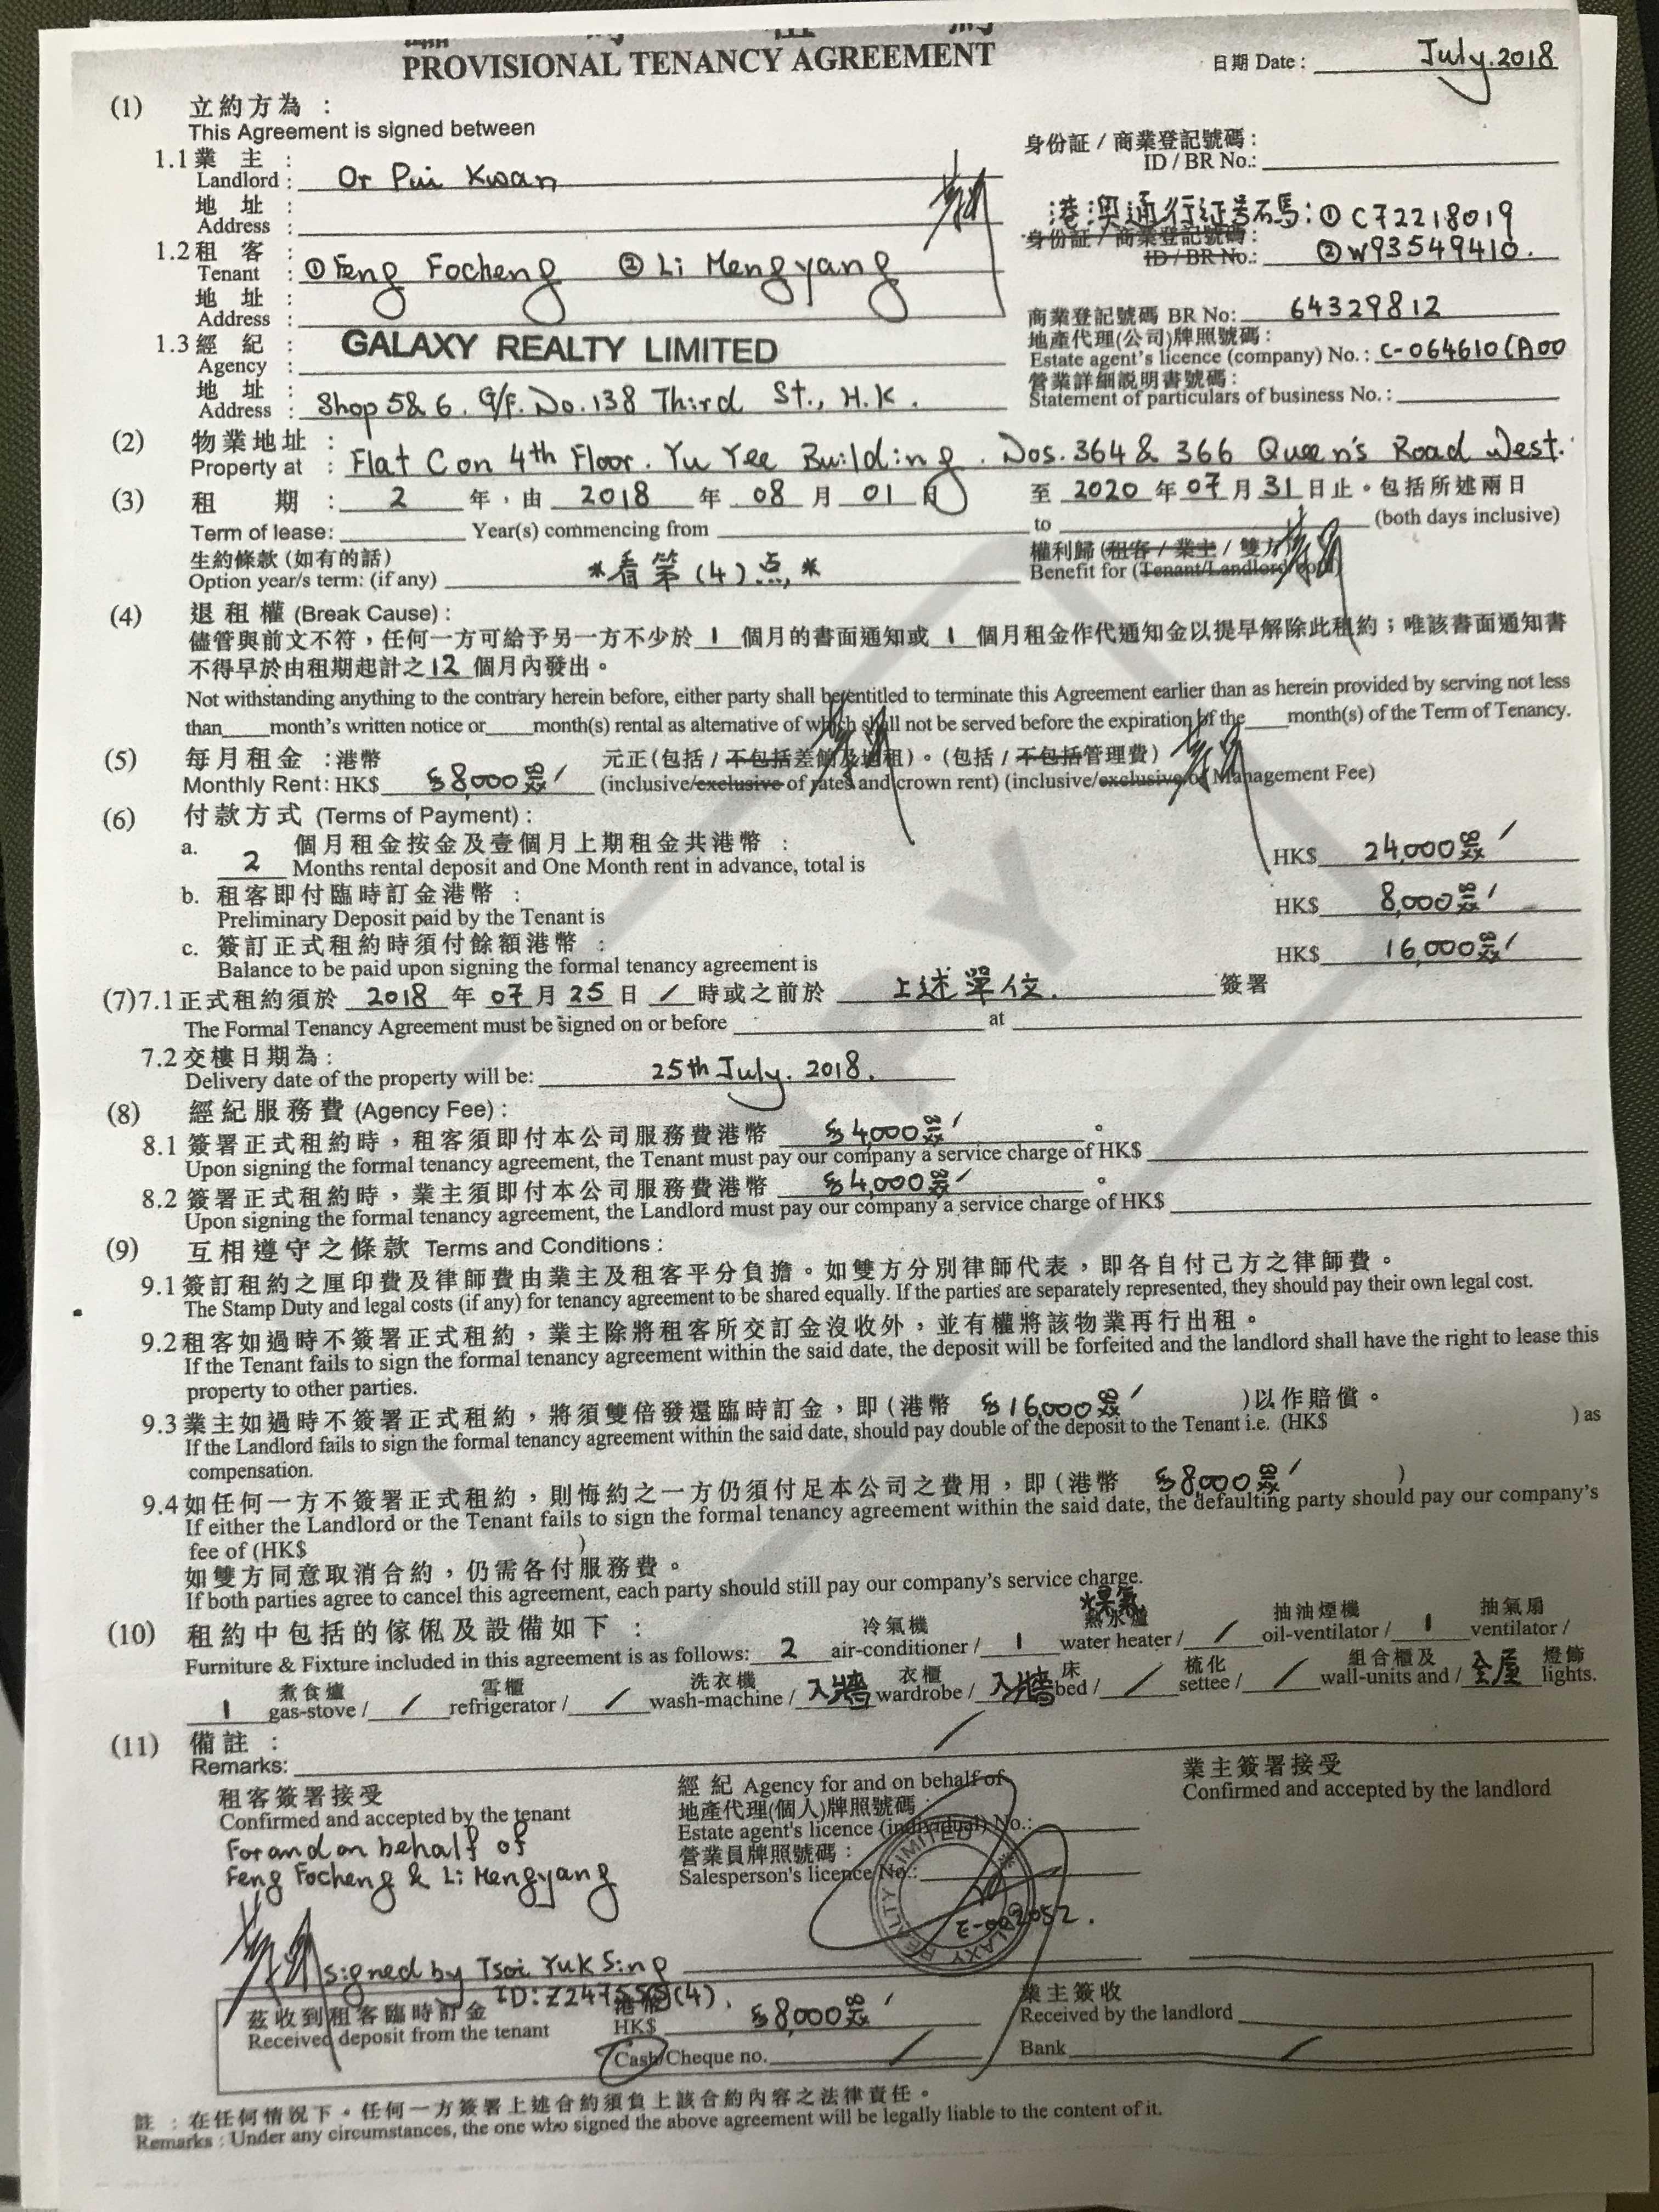 PROVISIONAL TENANCY AGREEMENT
日期 Date : July.2018
(1) 立約方為 :
This Agreement is signed between
身份証 / 商業登記號碼 :
ID / BR No.:
1.1 業 主 :
Landlord : Or Pui Kwan
地 址 :
Address :
港澳通行证号码: ① C72218019
身份証 / 商業登記號碼 :
1.2 租 客 :
Tenant : ① Feng Focheng ② Li Mengyang
ID / BR No.: ② W93549410.
地 址 :
Address :
商業登記號碼 BR No: 64329812
1.3 經 紀 : GALAXY REALTY LIMITED
Agency :
地產代理(公司)牌照號碼 :
Estate agent's licence (company) No. : C-064610 (A00
地 址 :
Address : Shop 5 & 6. G/F. No.138 Third St., H.K.
營業詳細説明書號碼 :
Statement of particulars of business No. :
(2) 物業地址 :
Property at : Flat C on 4th Floor. Yu Yee Building. Nos. 364 & 366 Queen's Road West.
(3) 租 期 : 2 年，由 2018 年 08 月 01 日 至 2020 年 07 月 31 日止。包括所述兩日
Term of lease: Year(s) commencing from to (both days inclusive)
生約條款 (如有的話) 權利歸 (租客 / 業主 / 雙方)
Option year/s term: (if any) *看第(4)点* Benefit for (Tenant/Landlord/
(4) 退租權 (Break Cause) :
儘管與前文不符，任何一方可給予另一方不少於 1 個月的書面通知或 1 個月租金作代通知金以提早解除此租約；唯該書面通知書
不得早於由租期起計之 12 個月內發出。
Not withstanding anything to the contrary herein before, either party shall be entitled to terminate this Agreement earlier than as herein provided by serving not less
than month's written notice or month(s) rental as alternative of which shall not be served before the expiration of the month(s) of the Term of Tenancy.
(5) 每月租金 : 港幣 元正 (包括 / 不包括差餉及地租)。(包括 / 不包括管理費)
Monthly Rent: HK$ $8,000 (inclusive/exclusive of rates and crown rent) (inclusive/exclusive of Management Fee)
(6) 付款方式 (Terms of Payment) :
a. 2 個月租金按金及壹個月上期租金共港幣 :
Months rental deposit and One Month rent in advance, total is HK$ 24,000
b. 租客即付臨時訂金港幣 :
Preliminary Deposit paid by the Tenant is HK$ 8,000
c. 簽訂正式租約時須付餘額港幣 :
Balance to be paid upon signing the formal tenancy agreement is HK$ 16,000
(7) 7.1 正式租約須於 2018 年 07 月 25 日 / 時或之前於 上述單位. 簽署
The Formal Tenancy Agreement must be signed on or before at
7.2 交樓日期為 :
Delivery date of the property will be: 25th July. 2018.
(8) 經紀服務費 (Agency Fee) :
8.1 簽署正式租約時，租客須即付本公司服務費港幣 $4,000 。
Upon signing the formal tenancy agreement, the Tenant must pay our company a service charge of HK$
8.2 簽署正式租約時，業主須即付本公司服務費港幣 $4,000 。
Upon signing the formal tenancy agreement, the Landlord must pay our company a service charge of HK$
(9) 互相遵守之條款 Terms and Conditions :
9.1 簽訂租約之厘印費及律師費由業主及租客平分負擔。如雙方分別律師代表，即各自付己方之律師費。
The Stamp Duty and legal costs (if any) for tenancy agreement to be shared equally. If the parties are separately represented, they should pay their own legal cost.
9.2 租客如過時不簽署正式租約，業主除將租客所交訂金沒收外，並有權將該物業再行出租。
If the Tenant fails to sign the formal tenancy agreement within the said date, the deposit will be forfeited and the landlord shall have the right to lease this
property to other parties.
9.3 業主如過時不簽署正式租約，將須雙倍發還臨時訂金，即 (港幣 $16,000 )以作賠償。
If the Landlord fails to sign the formal tenancy agreement within the said date, should pay double of the deposit to the Tenant i.e. (HK$ ) as
compensation.
9.4 如任何一方不簽署正式租約，則悔約之一方仍須付足本公司之費用，即 (港幣 $8,000 )
If either the Landlord or the Tenant fails to sign the formal tenancy agreement within the said date, the defaulting party should pay our company's
fee of (HK$ )
如雙方同意取消合約，仍需各付服務費。
If both parties agree to cancel this agreement, each party should still pay our company's service charge.
*煤氣
(10) 租約中包括的傢俬及設備如下 : 冷氣機 熱水爐 抽油煙機 抽氣扇
Furniture & Fixture included in this agreement is as follows: 2 air-conditioner / 1 water heater / / oil-ventilator / 1 ventilator /
煮食爐 雪櫃 洗衣機 衣櫃 床 梳化 組合櫃及 燈飾
1 gas-stove / / refrigerator / / wash-machine / 入牆 wardrobe / 入牆 bed / / settee / / wall-units and / 全屋 lights.
(11) 備註 :
Remarks: /
租客簽署接受
Confirmed and accepted by the tenant
經 紀 Agency for and on behalf of
業主簽署接受
Confirmed and accepted by the landlord
地產代理(個人)牌照號碼 :
Estate agent's licence (individual) No.:
營業員牌照號碼 :
Salesperson's licence No.:
For and on behalf of
Feng Focheng & Li Mengyang
GALAXY REALTY LIMITED
E-002052.
Signed by Tsoi Yuk Sing
茲收到租客臨時訂金 港幣 業主簽收
Received deposit from the tenant HK$ $8,000 Received by the landlord
Cash/Cheque no. / Bank /
註 : 在任何情況下。任何一方簽署上述合約須負上該合約內容之法律責任。
Remarks : Under any circumstances, the one who signed the above agreement will be legally liable to the content of it.